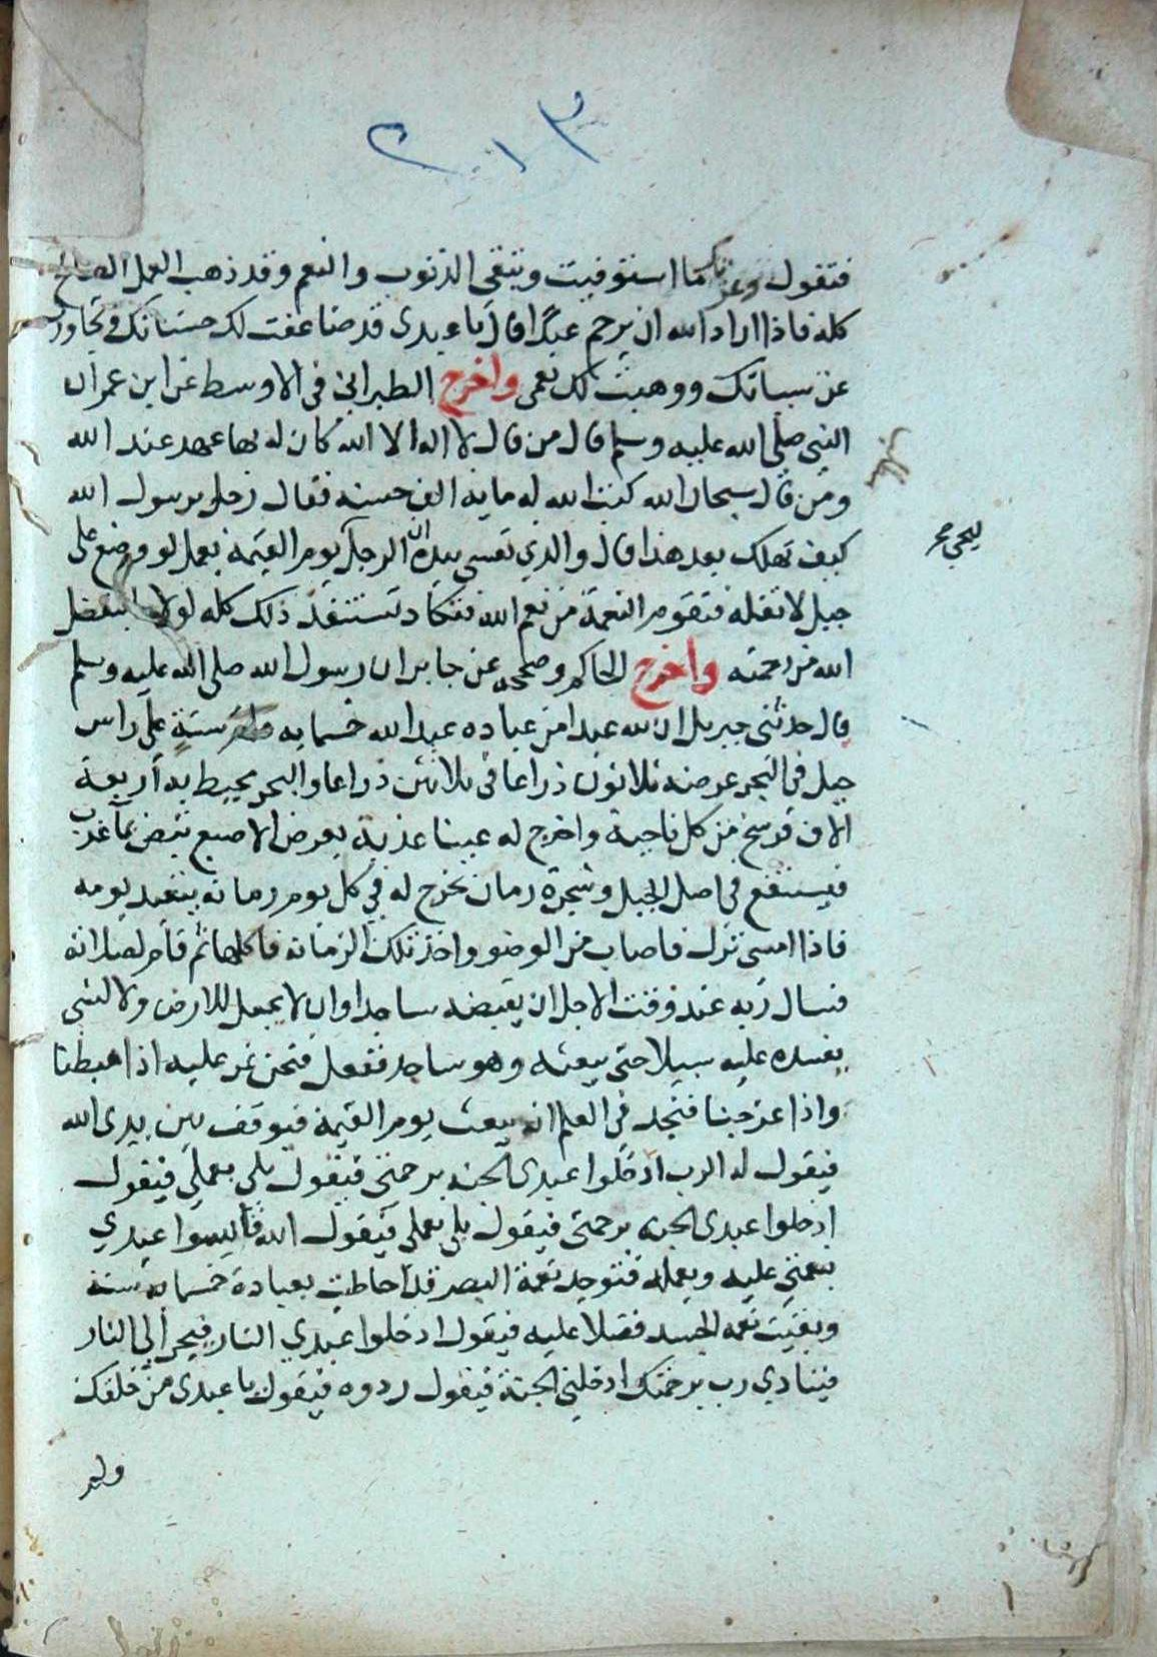 ٢٠١٣
فتقول وعزتك ما استوفيت وتبقى الذنوب والنعم وقد ذهب العمل الصالح
كله فاذا اراد الله ان يرحم عبدا قال يا عبدى قد ضاعفت لك حسناتك وتجاوزت
عن سياتك ووهبت لك نعمى واخرج الطبرانى فى الاوسط عن ابن عمر ان
النبى صلى الله عليه وسلم قال من قال لا اله الا الله كان له بها عهد عند الله
ومن قال سبحان الله كتبت الله له ماية الف حسنه فقال رجل يرسول الله
كيف نهلك بعد هذا قال والذي نفسى بيده ان الرجل ليجى يوم القيمة بعمل لو وضع على
جبل لاثقله فتقوم النعمة من نعم الله فتكاد تستنفد ذلك كله لولا ما يتفضل
الله من رحمته واخرج الحاكم وصححه عن جابر ان رسول الله صلى الله عليه وسلم
قال حدثنى جبريل ان لله عبدا من عباده عبد الله خسماية سنة على راس
جبل فى البحر عرضه ثلاثون ذراعا فى ثلاثين ذراعا والبحر يحيط به اربعة
الاف فرسخ من كل ناحية واخرج له عينا عذبة بعرض الاصبع تبض بماعذب
فيستنقع فى اصل الجبل وشجرة رمان تخرج له في كل يوم رمانه يتعبد يومه
فاذا امسى نزل فاصاب من الوضوء واخذ تلك الرمانه فاكلها ثم قام لصلاته
فسال ربه عند وقت الاجل ان يقبضه ساجدا وان لا يجعل للارض ولا لشى
يفسده عليه سبيلا حتى يبعثه وهو ساجد ففعل فنحن نمر عليه اذا هبطنا
واذا عرجنا فنجد فى العلم انه يبعث يوم القيمة فيوقف بين يدى الله
فيقول له الرب ادخلوا عبدى الجنه برحمتى فيقول بلى بعملي فيقول
ادخلوا عبدى الجنه برحمتى فيقول بلى بعملى فيقول الله قايسوا عبدي
بنعمتى عليه وبعمله فتوجد نعمة البصر قد احاطت بعبادة خمسمايه سنة
وبقيت نعمه الجسد فضلا عليه فيقول ادخلوا عبدي النار فيجر الى النار
فينادي رب برحمتك ادخلنى الجنة فيقول ردوه فيقول يا عبدى من خلقك
ولم